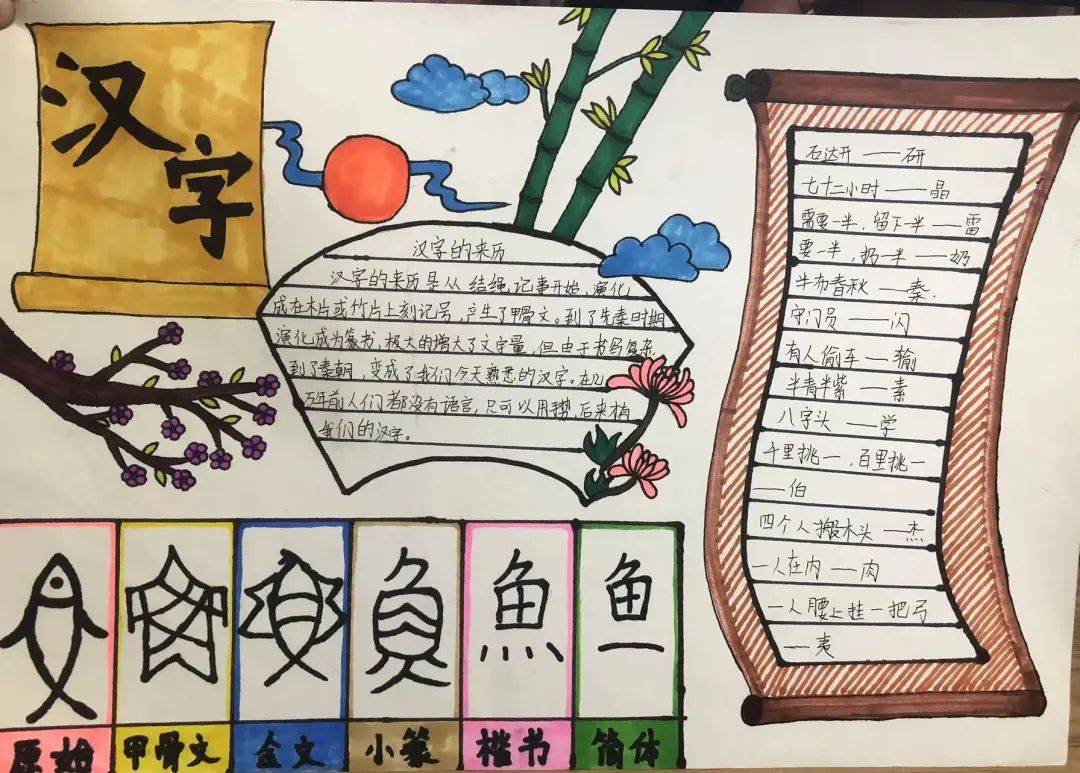 汉字
汉字的来历
汉字的来历是从结绳记事开始,演化
成在木片或竹片上刻记号,产生了甲骨文。到了先秦时期
演化成为篆书,极大的增大了文字量,但由于书写复杂,
到了秦朝,变成了我们今天熟悉的汉字。在几
万年前人们都没有语言,只可以用 后来有
我们的汉字。
石达开——研
七十二小时——晶
需要一半,留下一半——雷
要一半,扔一半——奶
牛布春秋——秦.
守门员——闪
有人偷车——输
半青半紫——素
八字头——学
千里挑一,百里挑一
——伯
四个人搬木头——杰
一人在内——肉
一人腰上挂一把弓
——夷
原始 甲骨文 金文 小篆 楷书 简体